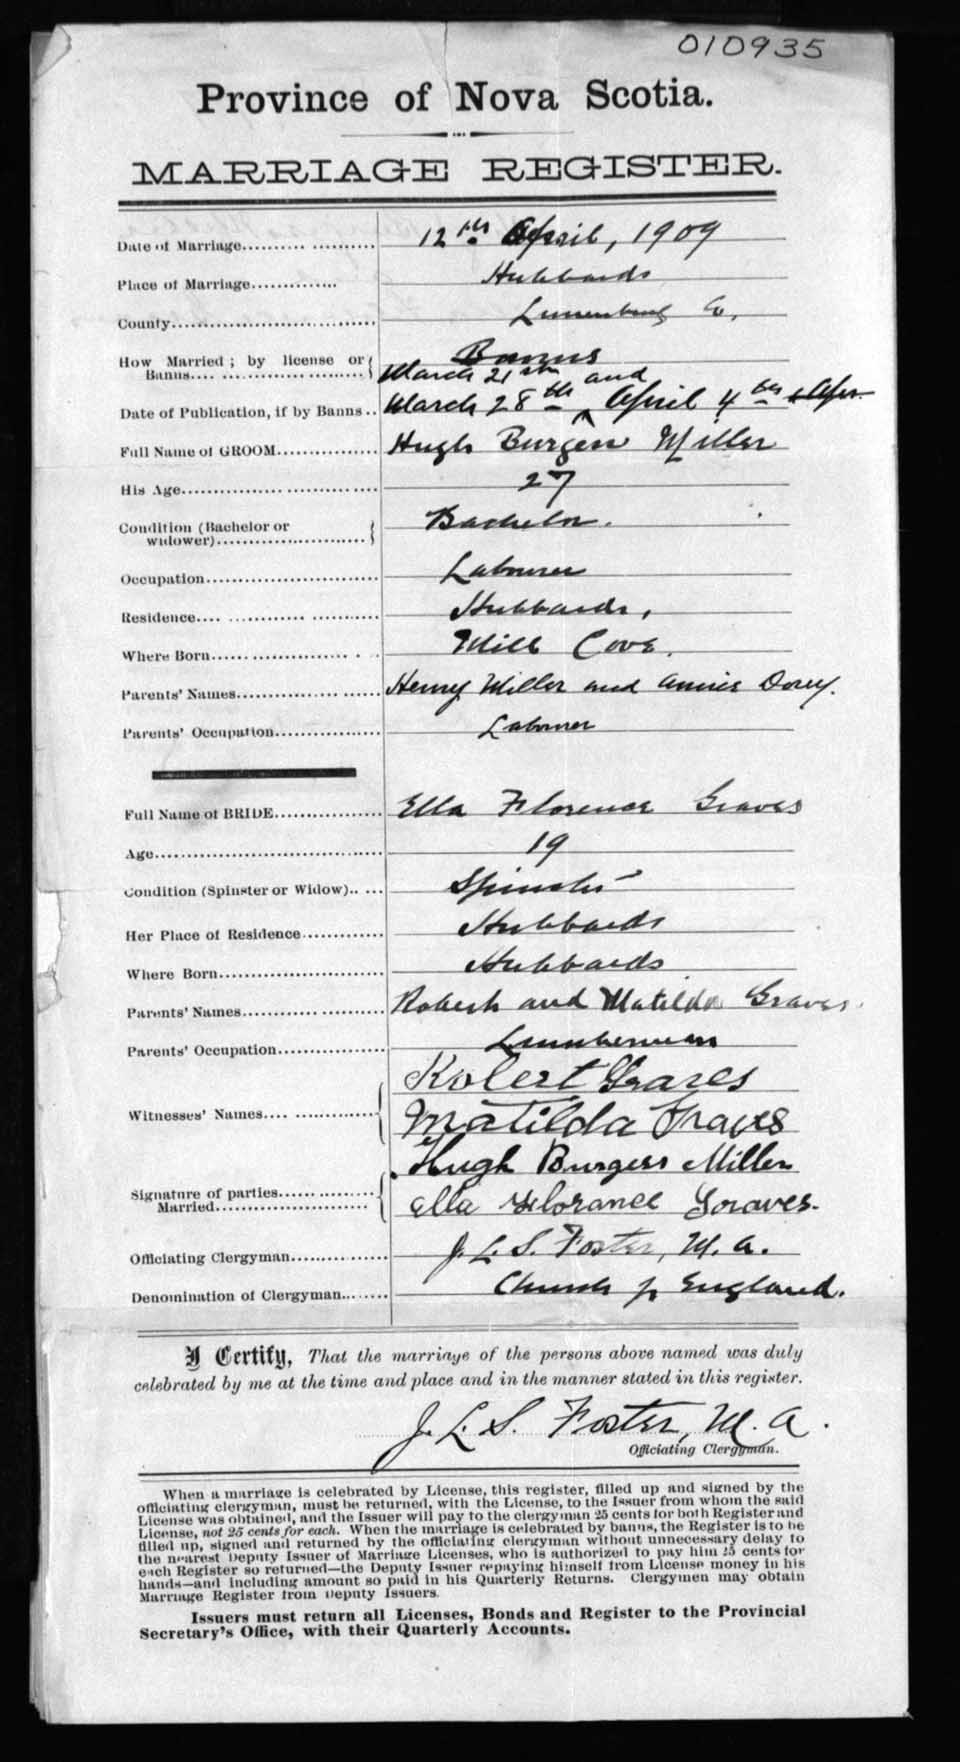 010935
Province of Nova Scotia.
MARRIAGE REGISTER.
Date of Marriage.......... 12th. April, 1909
Place of Marriage.............. Hubbards
County.............................. Lunenburg Co,
How Married ; by license or Banns.... Banns
March 21st and
Date of Publication, if by Banns.. March 28th April 4th
Full Name of GROOM................ Hugh Burgess Miller
His Age.............................. 27
Condition (Bachelor or
widower)........................ Bachelor.
Occupation.......................... Labourer
Residence.... Hubbards,
Where Born...... Mill Cove.
Parents' Names.................... Henry Miller and Annie Dorey.
Parents' Occupation................. Labourer
Full Name of BRIDE................ Ella Florence Graves
Age.................................... 19
Condition (Spinster or Widow).. ... Spinster
Her Place of Residence............. Hubbards
Where Born.......................... Hubbards
Parents' Names.................... Robert and Matilda Graves.
Parents' Occupation................. Lumberman
Witnesses' Names.... Robert Graves
Matilda Graves
Hugh Burgess Miller
Signature of parties
Married........................ Ella Florance Graves.
Officiating Clergyman............... J. L. S. Foster, M. A.
Denomination of Clergyman........ Church of England.
I Certify, That the marriage of the persons above named was duly
celebrated by me at the time and place and in the manner stated in this register.
J. L. S. Foster, M. A.
Officiating Clergyman.
When a marriage is celebrated by License, this register, filled up and signed by the
officiating clergyman, must be returned, with the License, to the Issuer from whom the said
License was obtained, and the Issuer will pay to the clergyman 25 cents for both Register and
License, not 25 cents for each. When the marriage is celebrated by banns, the Register is to be
filled up, signed and returned by the officiating clergyman without unnecessary delay to
the nearest Deputy Issuer of Marriage Licenses, who is authorized to pay him 25 cents for
each Register so returned—the Deputy Issuer repaying himself from License money in his
hands—and including amount so paid in his Quarterly Returns. Clergymen may obtain
Marriage Register from Deputy Issuers.
Issuers must return all Licenses, Bonds and Register to the Provincial
Secretary's Office, with their Quarterly Accounts.